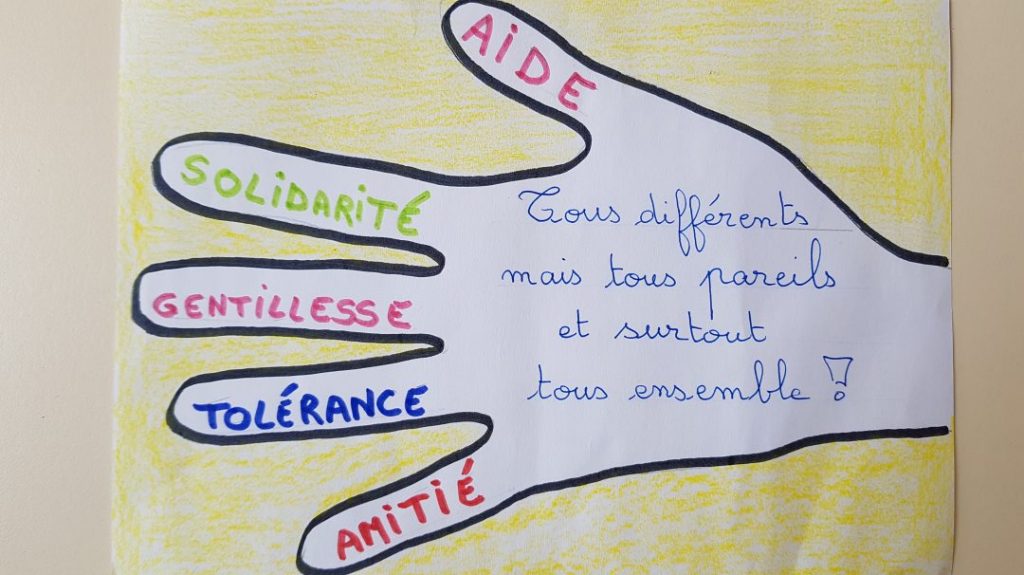 AIDE
SOLIDARITÉ
GENTILLESSE
TOLÉRANCE
AMITIÉ
Tous différents
mais tous pareils
et surtout
tous ensemble !